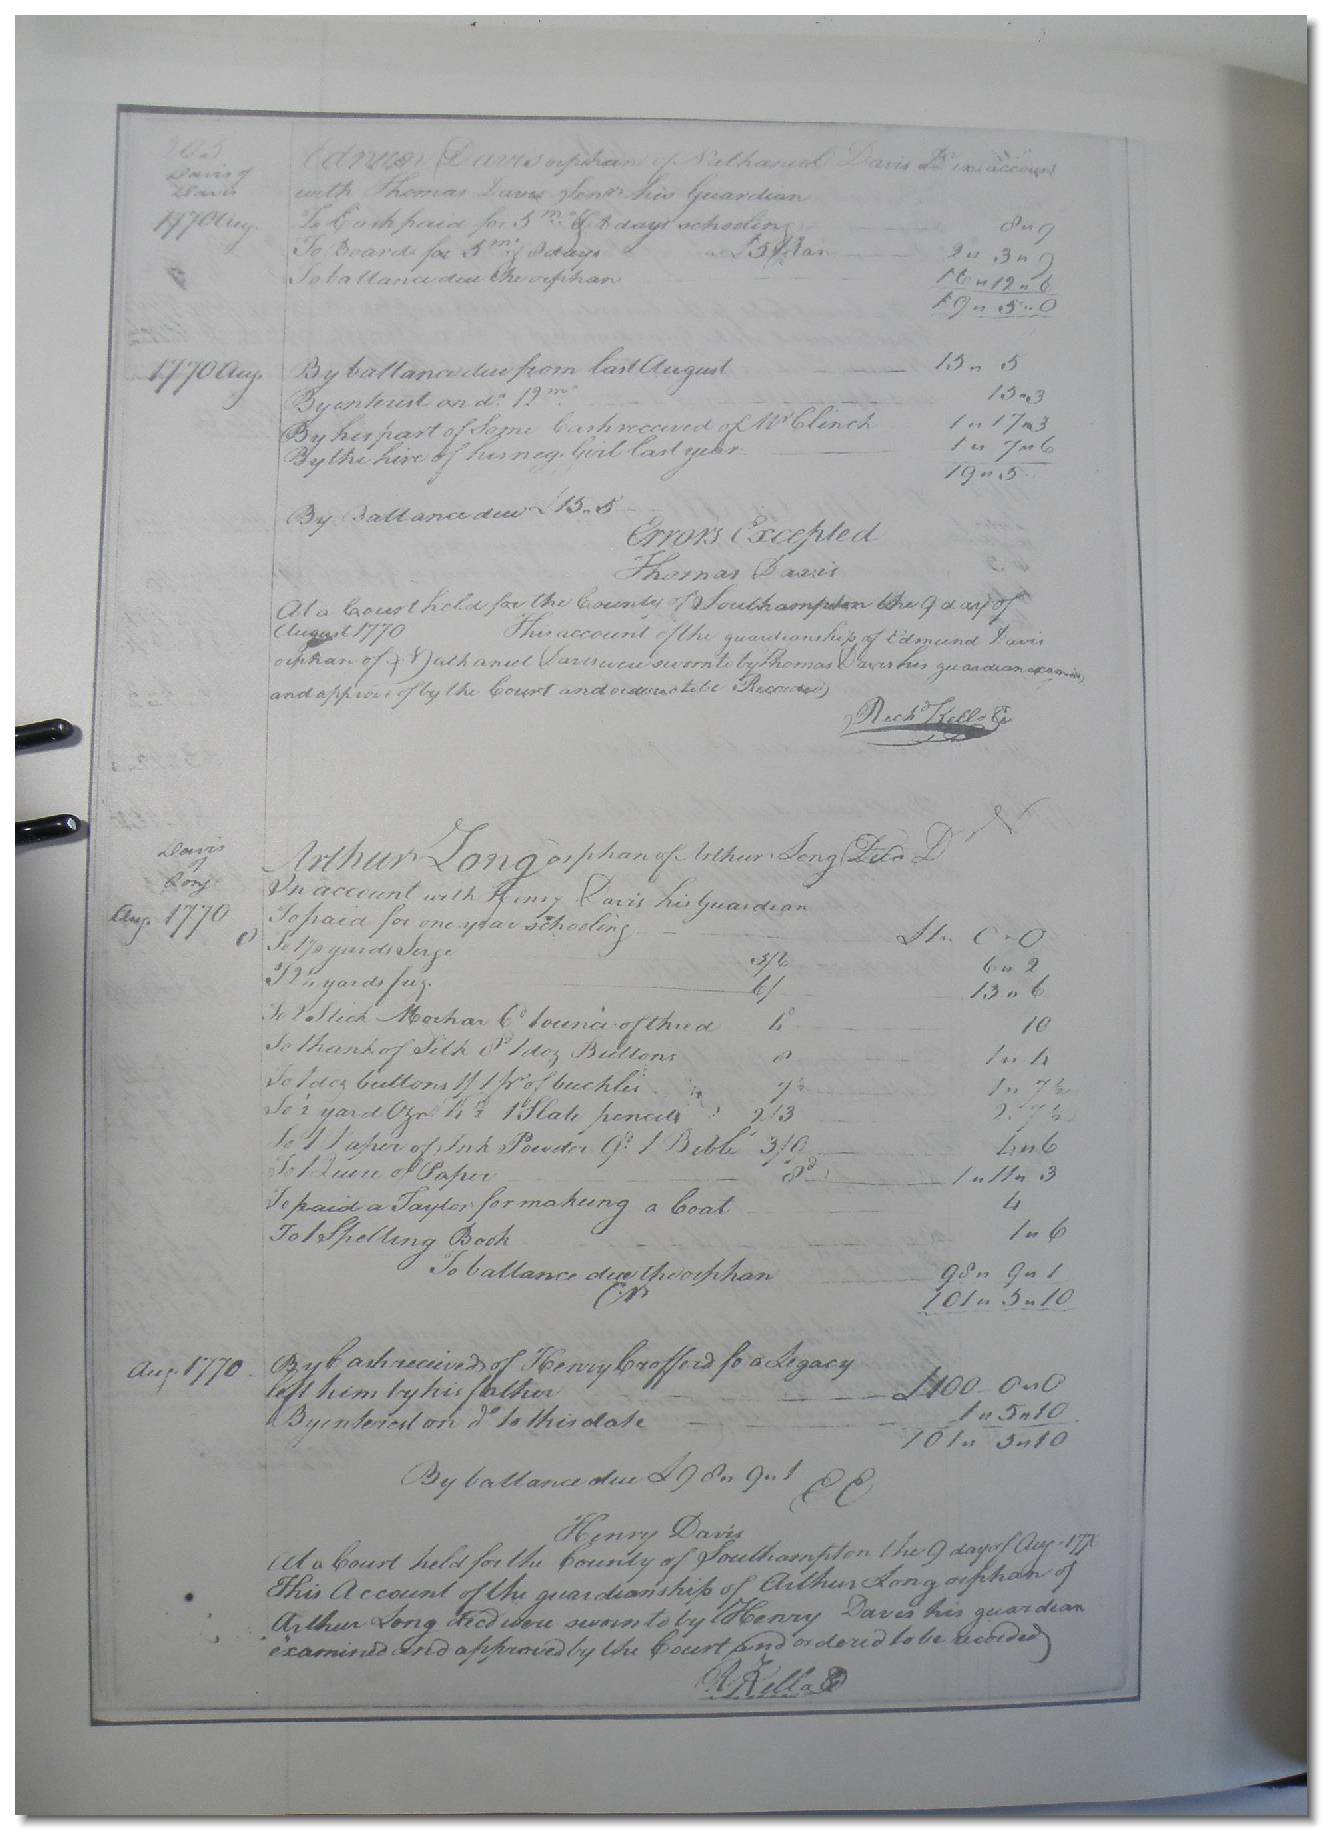 Davis of
Davis
Edmun Davis orphan of Nathaniel Davis Dr in account
with Thomas Davis Senr his Guardian
1770 Aug. To Cash paid for 5 ms & 8 days schooling 8 " 9
To Board for 5 ms & 8 days a £5 ⅌ an 2 " 3 " 9
To ballance due the orphan 16 " 12 " 6
19 " 5 " 0
1770 Aug. By ballance due from last August 15 " 5
By interest on do. 12 ms. 15 " 3
By his part of some Cash received of Wm Clinch 1 " 17 " 3
By the hire of his neg. Girl last year 1 " 7 " 6
19 " 5
By Ballance due £15 " 5
Errors Excepted
Thomas Davis
At a Court held for the County of Southampton the 9 day of
August 1770 This account of the guardianship of Edmund Davis
orphan of Nathaniel Davis were sworn to by Thomas Davis his guardian examined
and approve of by the Court and ordered to be Recorded
Richd Kello C
Davis
of
Long
Arthur Long orphan of Arthur Long Decd Dr
In account with Henry Davis his Guardian
Aug. 1770 To paid for one year schooling £1 " 0 " 0
To yards Serge 3/6 6 " 2
To yards 6/ 13 " 6
To 2 Stick Mohar 6d 1 ounce of thred 4 10
To 1 hank of Silk 8d 1 doz Buttons 8 1 " 4
To 1 doz buttons 1/ 1 pr of buckles 7½ 1 " 7½
To 2 yard Ozn 1 Slate pencil 2/3 2 " 7½
To 1 Paper of Ink Powder 9d 1 Bible 3/9 4 " 6
To 1 Quire of Paper 1 " 11 " 3
To paid a Taylor for making a Coat 4
To 1 Spelling Book 1 " 6
To ballance due the orphan 98 " 9 " 1
Cr 101 " 5 " 10
Aug. 1770 By Cash received of Henry Crafferd fo a Legacy
left him by his father £100 " 0 " 0
By interest on do to this date 1 " 5 " 10
101 " 5 " 10
By ballance due £98 " 9 " 1 EE
Henry Davis
At a Court held for the County of Southampton the 9 day of Aug. 177
This Account of the guardianship of Arthur Long orphan of
Arthur Long decd were sworn to by Henry Davis his guardian
examined and approved by the Court and ordered to be recorded
R Kello C